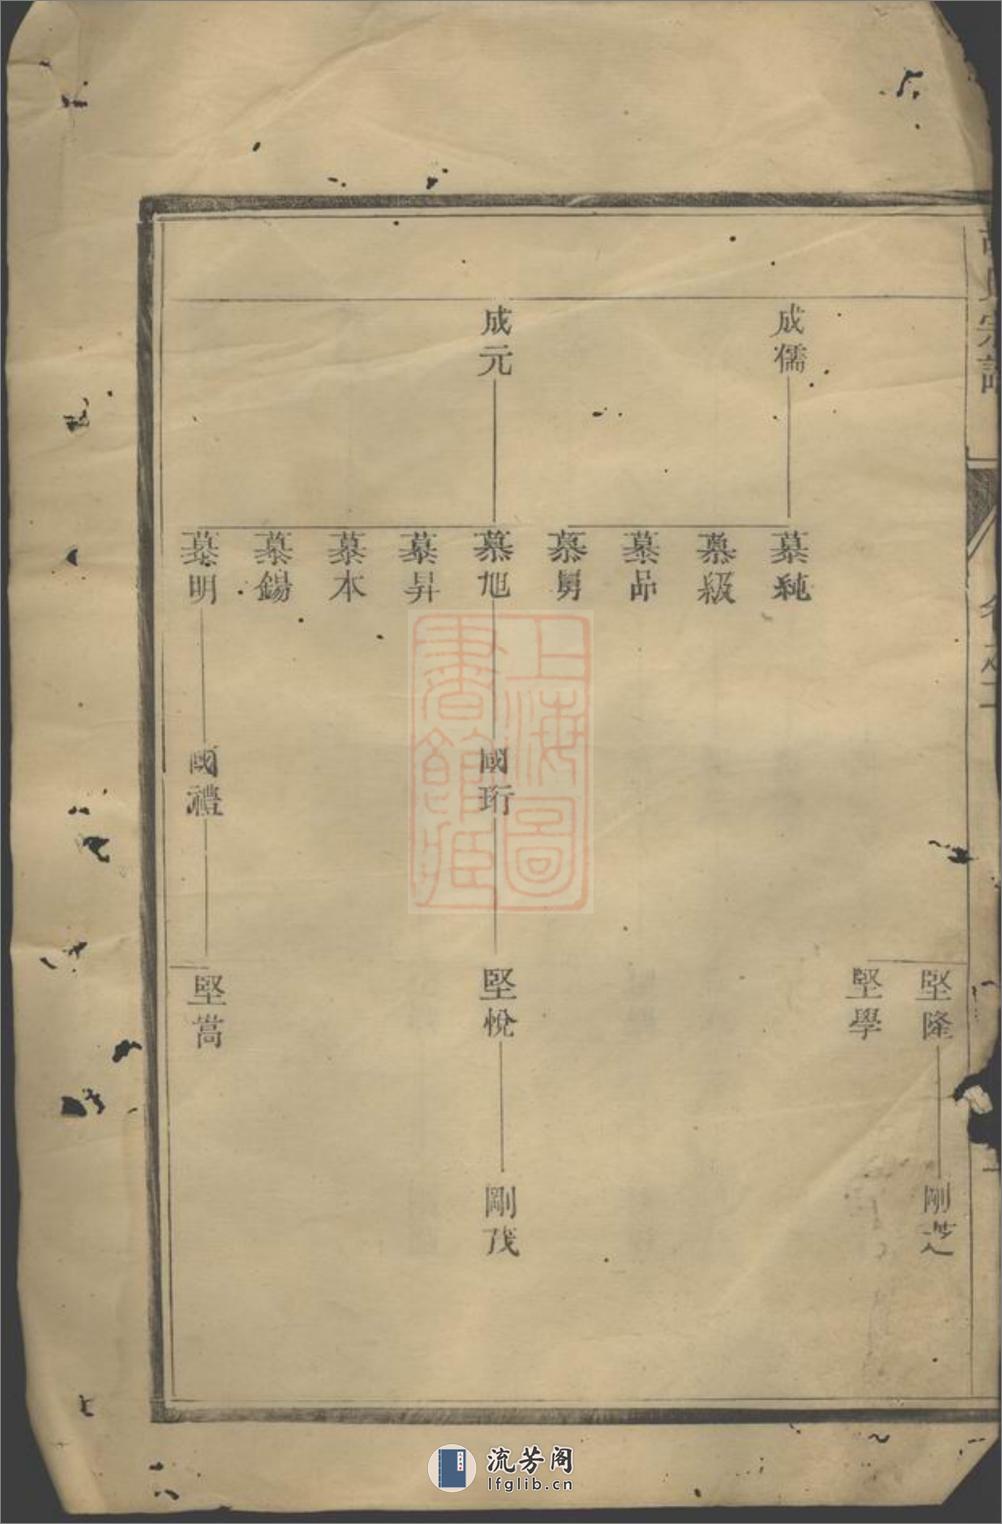 宗譜
成儒
成元
慕純
慕級
慕品
慕舅
慕旭
慕昇
慕本
慕錫
慕明
國珩
國禮
堅隆
堅學
堅悅
堅嵩
剛芝
剛茂
上海圖
書館藏
流芳阁
lfglib.cn